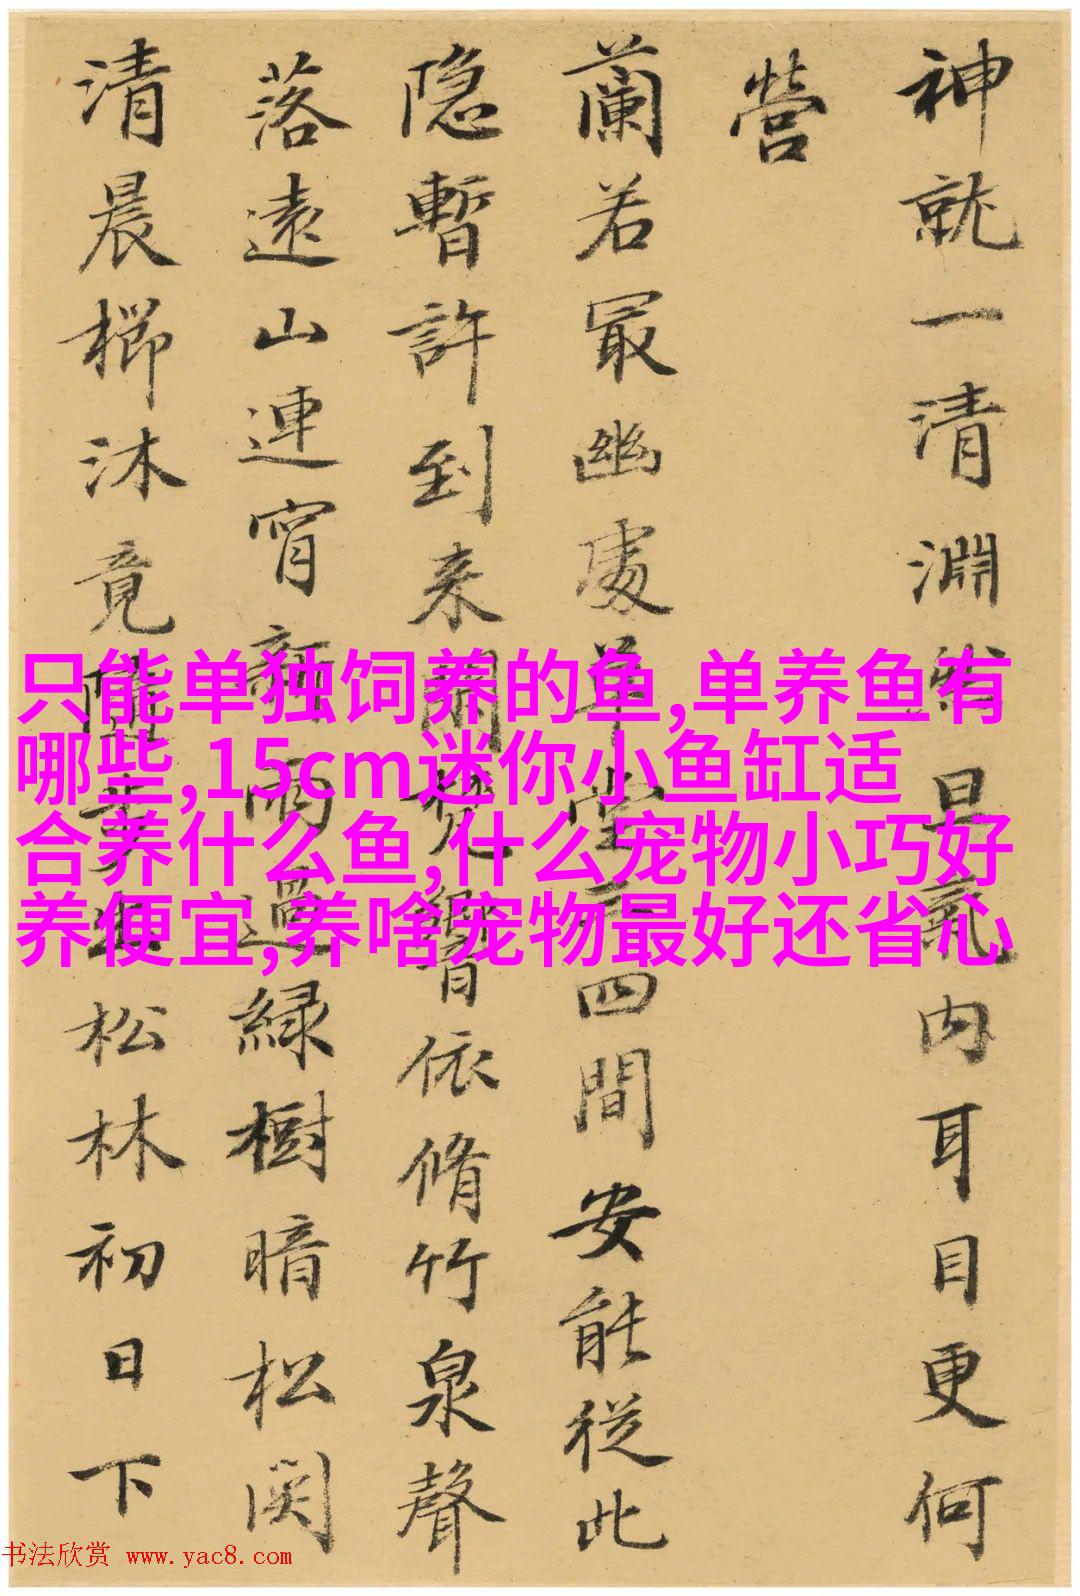 神就一清淵氣内耳目更何
營
蘭若冣幽處草堂四間安能從此
隐暫許到来閑梵響依脩竹泉聲
落遠山連宵雨過緑樹暗松関
清晨櫛沐竟松林初日下
只能单独饲养的鱼,单养鱼有
哪些,15cm迷你小鱼缸适
合养什么鱼,什么宠物小巧好
养便宜,养啥宠物最好还省心
书法欣赏 www.yac8.com